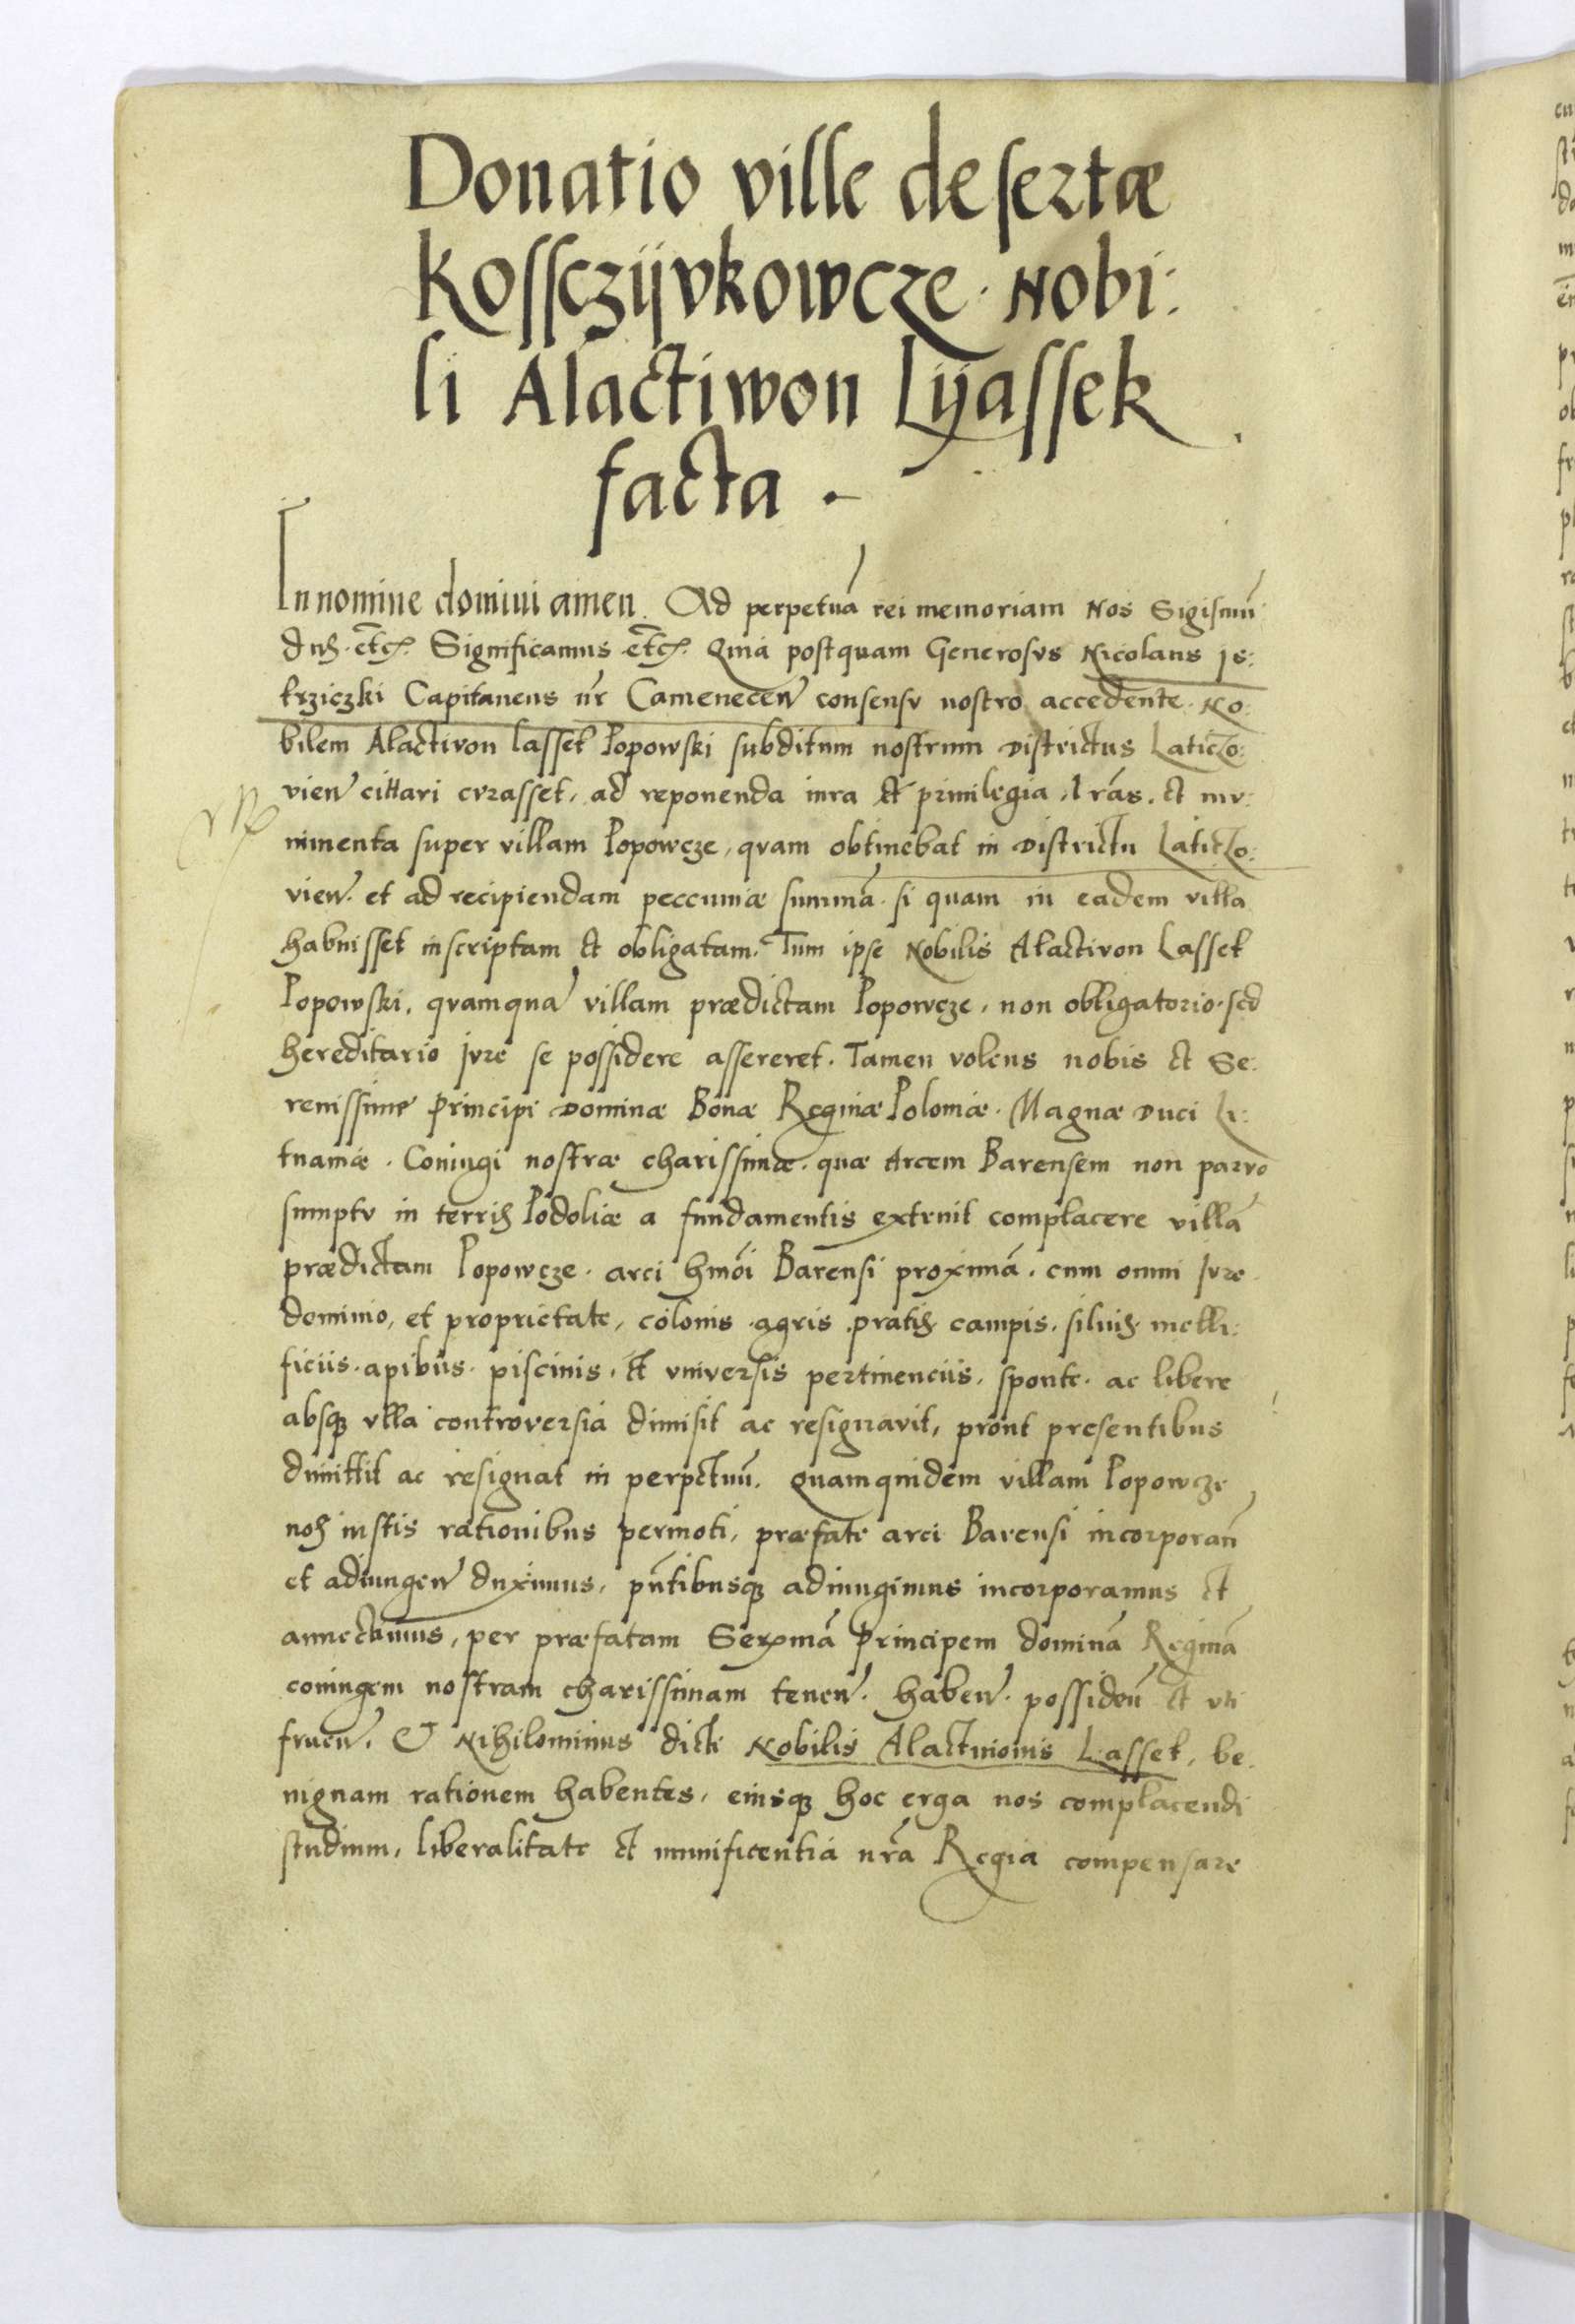 Donatio ville desertæ
Kossczÿvkowcze · Nobi:
li Alactiwon Lÿassek
facta ·
In nomine domini amen. Ad perpetuā rei memoriam Nos Sigismū
dus · etc̄. Significamus etc̄. Quia postquam Generosvs Nicolaus Is:
krziczki Capitaneus nr̄ Camenecen̄ consensv nostro accedente · No:
bilem Alactivon Lassek Popowski subditum nostrum districtus Laticzo:
vien̄ cittari cvrasset, ad reponenda iura et privilegia, lrās, et mv:
nimenta super villam Popowcze, qvam obtinebat in districtu Laticzo:
vien̄. et ad recipiendam peccuniæ summā · si quam in eadem villa
habuisset inscriptam et obligatam. Tum ipse Nobilis Alactivon Lassek
Popowski, qvamquā villam prædictam Popowcze, non obligatorio · sed
hereditario Ivre se possidere assereret. Tamen volens nobis et Se:
renissime Principi Dominæ Bonæ Reginæ Poloniæ. Magnæ Duci Li:
tuaniæ. Coniugi nostræ charissimæ. quæ Arcem Barensem non parvo
sumptv in terris Podoliæ a fundamentis extruit complacere villā
prædictam Popowcze · arci hmōi Barensi proximā. cum omni Ivre
dominio, et proprietate, colonis · agris · pratis campis · silvis melli:
ficiis · apibus · piscinis, et vniversis pertinenciis, sponte · ac libere
absqʒ vlla controversia dimisit ac resignavit, prout presentibus
dimittit ac resignat in perpetuū. Quamquidem villam Popowcze
nos iustis rationibus permoti, præfate arci Barensi incorporan̄
et adiungen̄ duximus, pn̄tibusqʒ adiungimus incorporamus et
annectimus, per præfatam Serᵐᵃ̄ Principem dominā Reginā
coniugem nostram charissimam tenen̄. haben̄. possiden̄ et vti
fruen̄. Et Nihilominus dicti Nobilis Alactiuionis Lassek, be
nignam rationem habentes, eiusqʒ hoc erga nos complacendi
studium, liberalitate et munificentia nr̄a Regia compensare